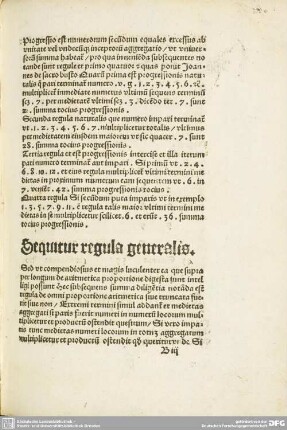 Progressio est numerorum secūdum equales excessus ab
vnitate vel vndecūq; incepto aggregatio / vt vniuer
soꝝ summa habeat / pro qua inuenioda subsequentes no
tande sunt regule et primo quatuor quas ponit Joan
nes de sacro busto Quaꝝ prima est progressionis natu
ralis q̄ pari terminat̄ numero . v. g . 1 . 2 . 3 . 4 . 5 . 6 . tc̄.
multiplicet̄ inmediate numerus vltimū sequens terminū
scꝫ . 7 . per medietatē vltimi scꝫ . 3 . dicēdo ter . 7 . sunt
21 . summa tocius progressionis .
Secunda regula naturalis que numero impari terminat̄
vt . 1 . 2 . 3 . 4 . 5 . 6 . 7 . multiplicetur totalis / vltimus
per medietatem eiusdem maiorem vt sic quater . 7 . sunt
28 . summa tocius progressionis .
Tercia regula est progressionis intercise et illa iterum
pari numero terminat̄ aut impari . Si primū vt . 2 . 4
. 6 . 8 . 10 . 12 . et eius regula multiplicet̄ vltimi termini me
dietas in proximum numerum eam sequentem vt . 6 . in
7 . veniēt . 42 . summa progressionis tocius .
Quarta regula Si secūdum puta imparis vt in exemplo
1 . 3 . 5 . 7 . 9 . 11 . ē regula talis maior vltimi termini me
dietas in se multiplicetur scilicet . 6 . et erūt . 36 . summa
tocius progressionis .
Sequitur regula generalis.
Sed vt compendiosius et magis luculenter ea que supra
per longum de aritmetica proportione digesta sunt intel
ligi possunt Hec subsequens summa diligētia notāda est
regula de omni proportione aritmetica siue truncata fue
rit siue non / Extremi termini simul addant̄ et medietas
aggregati si paris fuerit numeri in numerū locorum mul
tiplicetur et productū ostendit quesitum / Si vero imparis
tunc medietas numeri locorum in totuꝫ aggregatum
multiplicetur et productū ostendit qd̄ queritur vt de Si
B iij